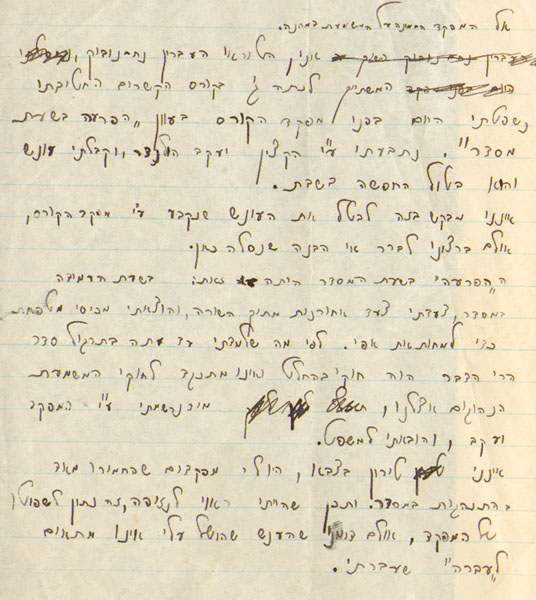 אל המפקד הממונה על המשמעת במחנה.
אני, הטוראי העברי נחמנוביק,
המשתייך לכתה ג' בקורס הקשרים החטיבתי
נשפטתי היום בפני מפקד הקורס בעוון "הפרעה בשעת
מסדר". נתבעתי ע"י הקצין יעקב הולנדר, וקבלתי עונש
והוא בטול החפשה בשבת.
אינני מבקש בזה לבטל את העונש שנקבע ע"י מפקד הקורס,
אולם ברצוני לברר אי הבנה שנפלה כאן.
ה"הפרעה" בשעת המסדר היתה זאת: בשעת העמידה
במסדר, צעדתי צעד אחורנית מתוך השורה, והוצאתי מכיסי מטפחת
כדי למחות את אפי. לפי מה שלמדתי עד עתה בתרגול סדר
הרי הדבר הזה חוקי בהחלט ואינו מתנגד לחוקי המשמעת
הנהוגים אצלנו, מיד נרשמתי ע"י המפקד
יעקב, והובאתי למשפט.
אינני טירון בצבא, היו לי מפקדים שהחמירו מאד
בהתנהגות במסדר. יתכן שהייתי ראוי לנזיפה, זה נתון לשפוטו
של המפקד, אולם דומני שהענש שהוטל עלי אינו מתאים
ל"עברה" שעברתי.